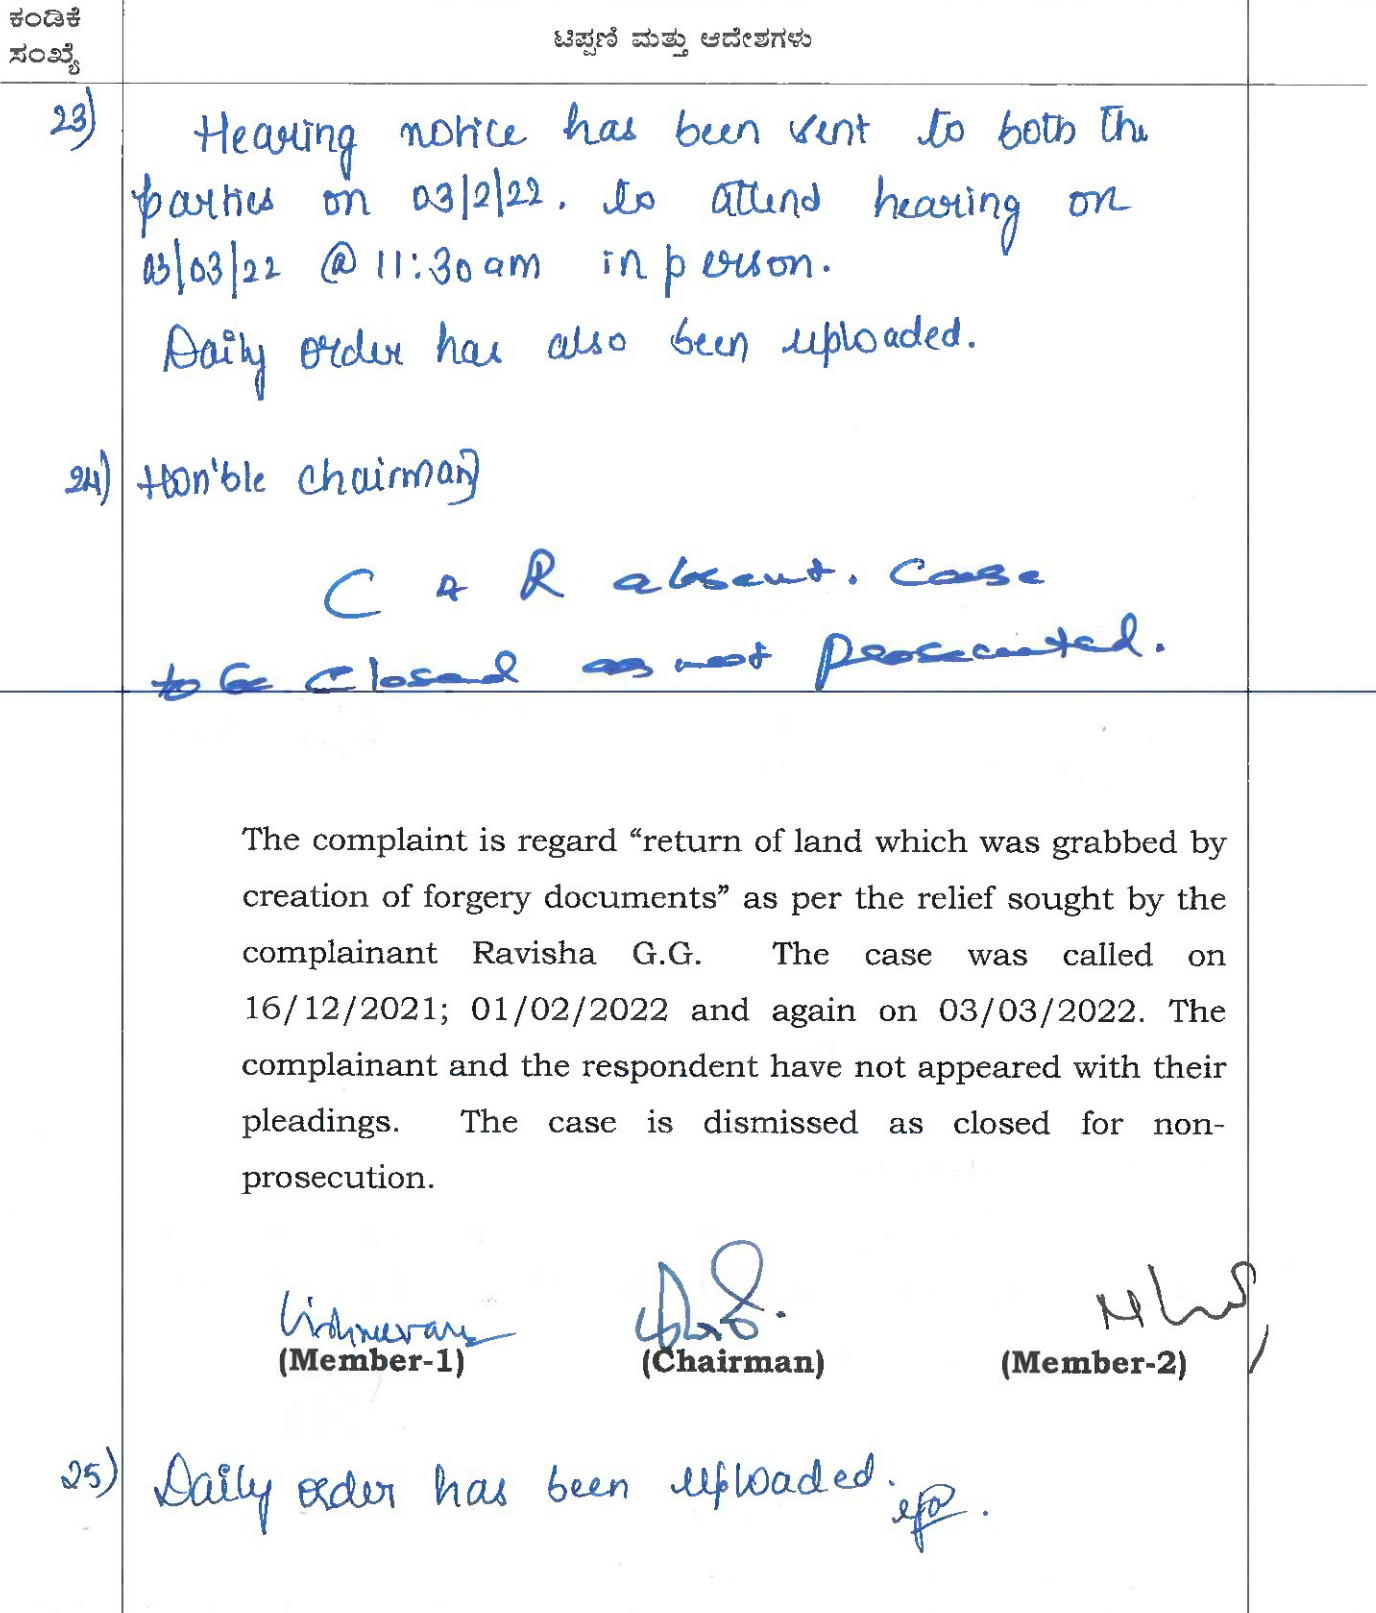 ಕಂಡಿಕೆ
ಸಂಖ್ಯೆ
ಟಿಪ್ಪಣಿ ಮತ್ತು ಆದೇಶಗಳು
23) Hearing notice has been sent to both the
parties on 03/2/22. to attend hearing on
03/03/22 @ 11:30am in person.
Daily order has also been uploaded.
24) Hon'ble chairman
C & R absent. Case
to be closed as not prosecuted.
The complaint is regard “return of land which was grabbed by
creation of forgery documents” as per the relief sought by the
complainant Ravisha G.G. The case was called on
16/12/2021; 01/02/2022 and again on 03/03/2022. The
complainant and the respondent have not appeared with their
pleadings. The case is dismissed as closed for non-
prosecution.
(Member-1) (Chairman) (Member-2)
25) Daily order has been uploaded.